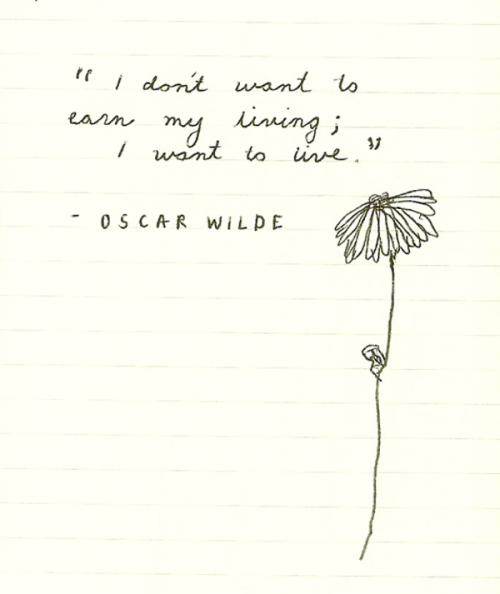 " I don't want to
earn my living;
I want to live."
- OSCAR WILDE